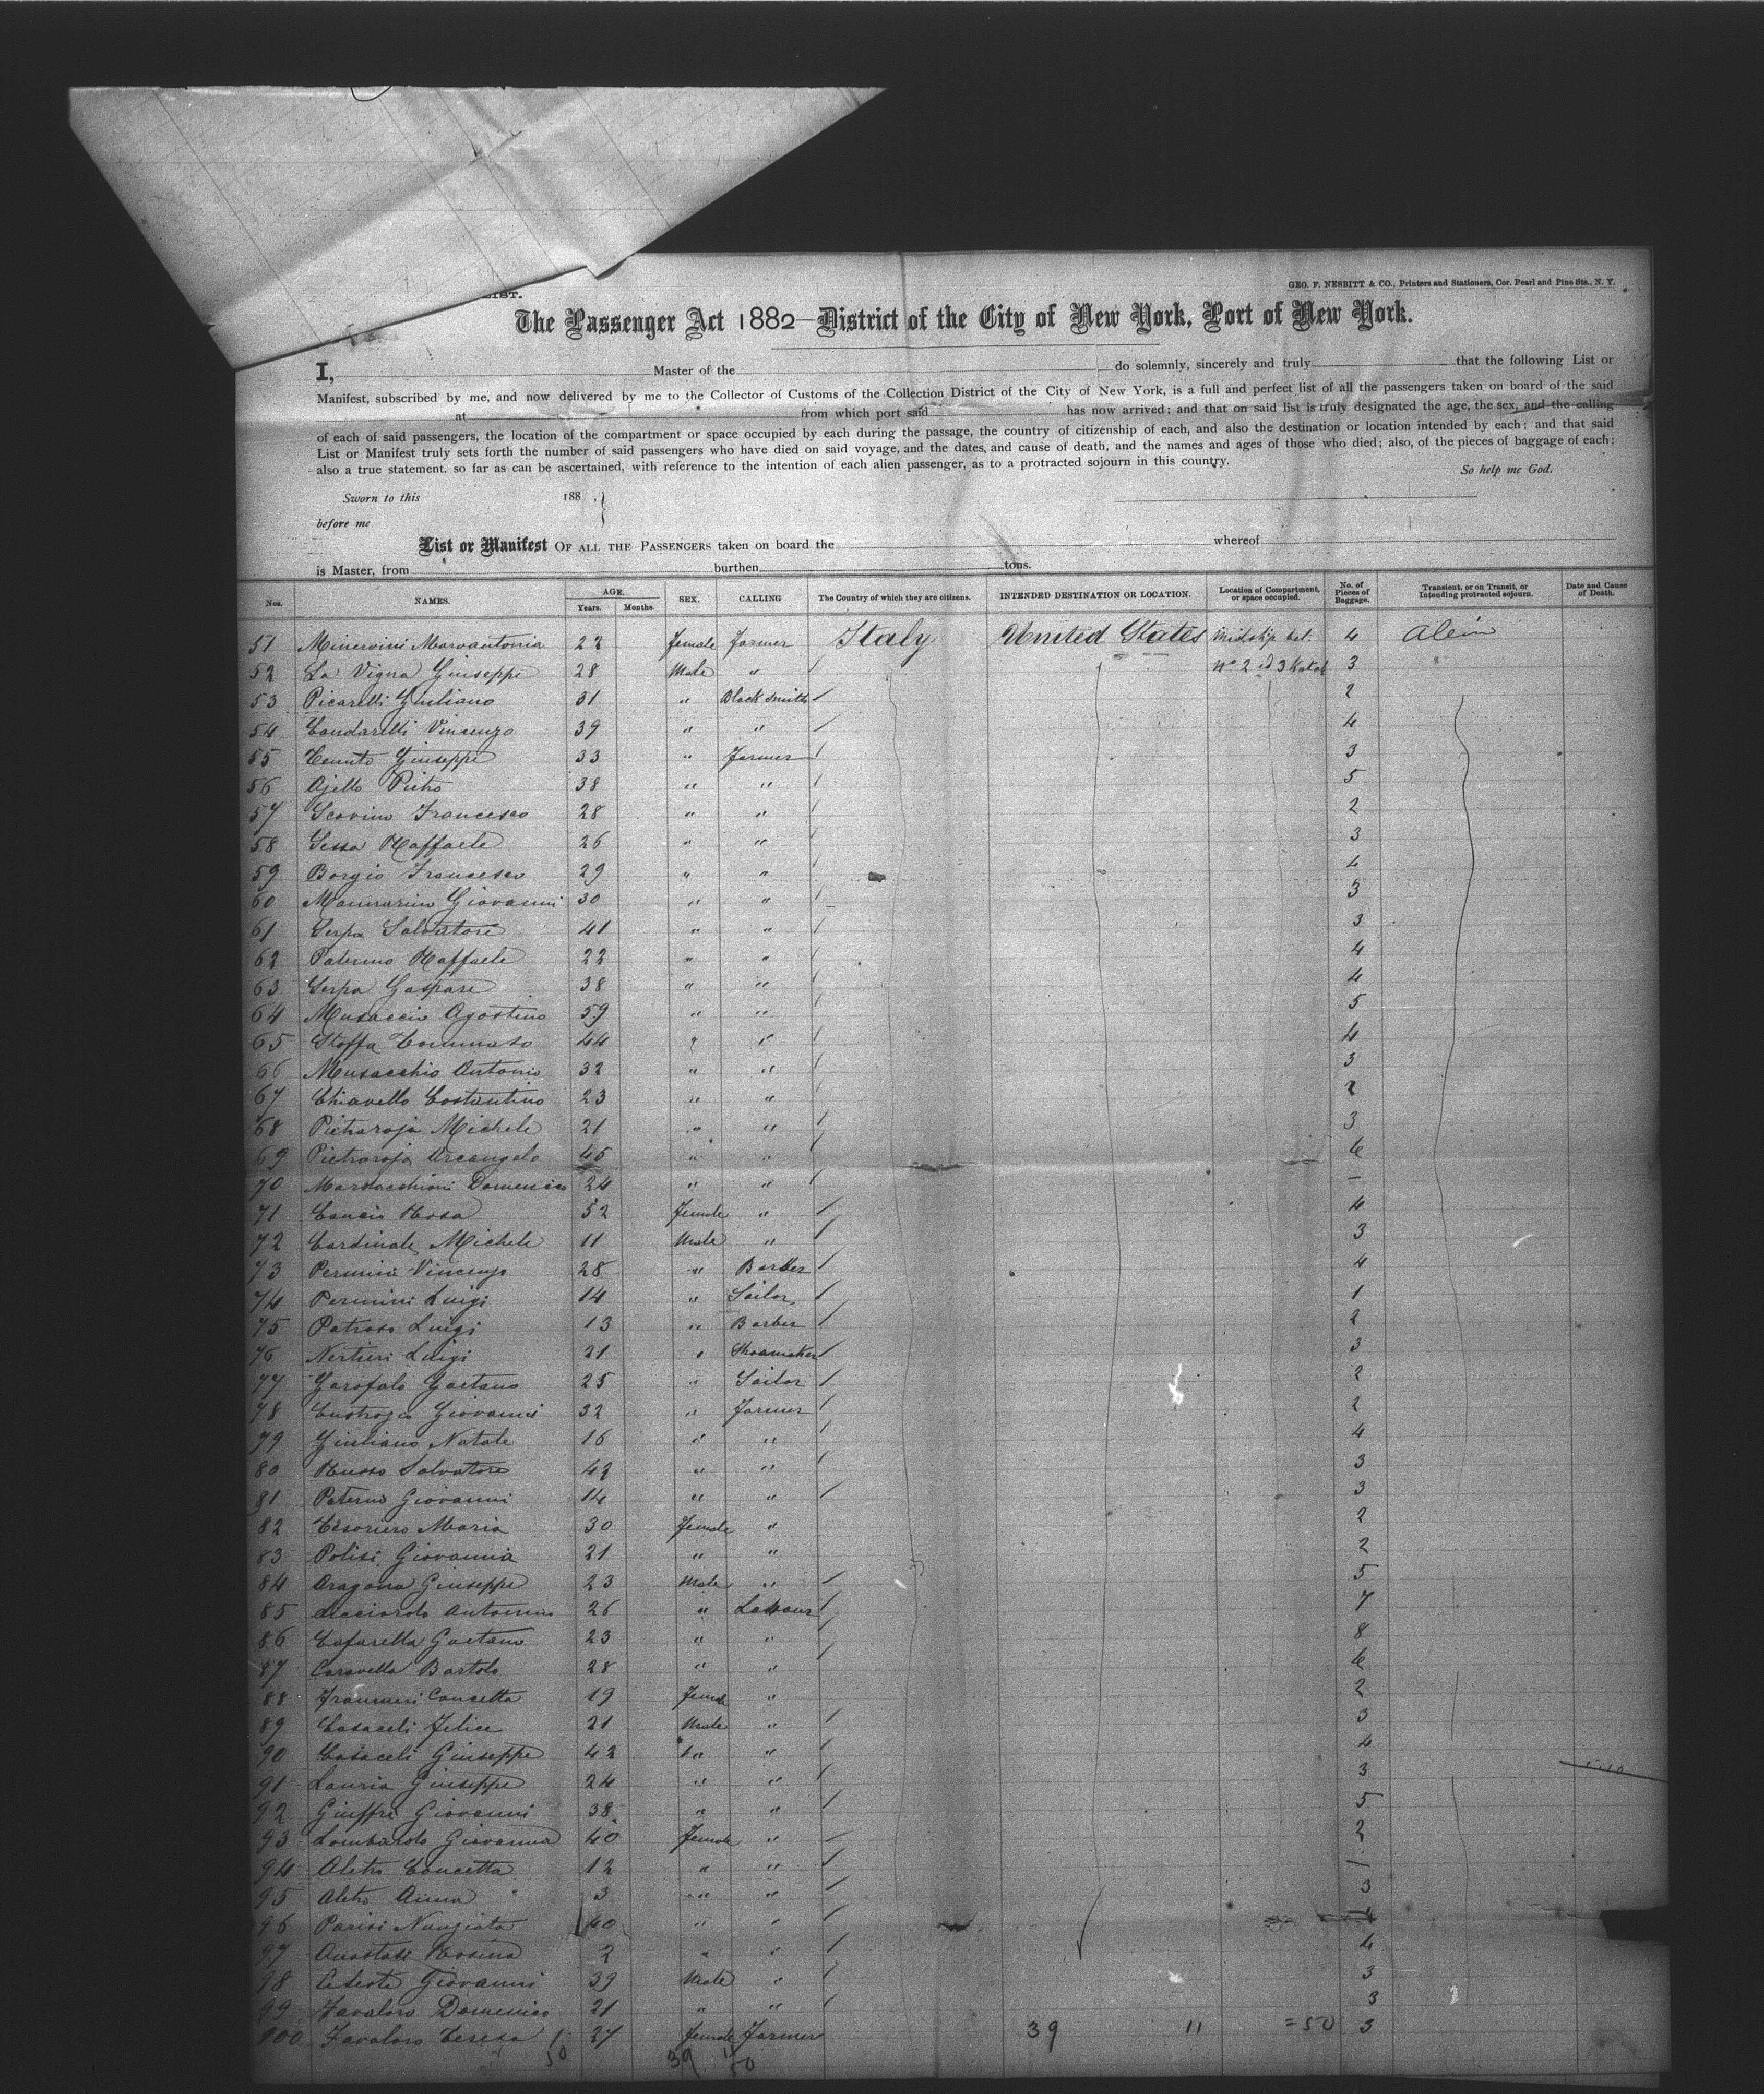 LIST.
GEO. F. NESBITT & CO., Printers and Stationers, Cor. Pearl and Pine Sts., N. Y.
The Passenger Act 1882 District of the City of New York, Port of New York.
I, Master of the do solemnly, sincerely and truly that the following List or
Manifest, subscribed by me, and now delivered by me to the Collector of Customs of the Collection District of the City of New York, is a full and perfect list of all the passengers taken on board of the said
at from which port said has now arrived; and that on said list is truly designated the age, the sex, and the calling
of each of said passengers, the location of the compartment or space occupied by each during the passage, the country of citizenship of each, and also the destination or location intended by each; and that said
List or Manifest truly sets forth the number of said passengers who have died on said voyage, and the dates, and cause of death, and the names and ages of those who died; also, of the pieces of baggage of each;
also a true statement, so far as can be ascertained, with reference to the intention of each alien passenger, as to a protracted sojourn in this country. So help me God.
Sworn to this 188 .
before me
List or Manifest OF ALL THE PASSENGERS taken on board the whereof
is Master, from burthen tons.
Nos. NAMES. AGE. Years. Months. SEX. CALLING The Country of which they are citizens. INTENDED DESTINATION OR LOCATION. Location of Compartment, or space occupied. No. of Pieces of Baggage. Transient, or on Transit, or Intending protracted sojourn. Date and Cause of Death.
51 Minervini 22 Female Farmer Italy United States Midship bet. 4 Alein
52 La Vigna Giuseppe 28 Male " No 2 3 3
53 Picarelli Giuliano 31 " Black Smith 2
54 Condarelli Vincenzo 39 " " 4
55 Giuseppe 33 " Farmer 3
56 Ajello Pietro 38 " " 5
57 Scovino Francesco 28 " " 2
58 Sessa Raffaele 26 " " 3
59 Borgio Francesco 29 " " 4
60 Giovanni 30 " " 3
61 Serpa Salvatore 41 " " 3
62 Paterno Raffaele 22 " " 4
63 Serpa Gaspare 38 " " 4
64 Musaccio Agostino 59 " " 5
65 Stoffa 44 " " 4
66 Musacchio Antonio 32 " " 3
67 Chiavello Costantino 23 " " 2
68 Pietraroja Michele 21 " " 3
69 Pietraroja Arcangelo 45 " " 6
70 Domenico 24 " " –
71 Rosa 52 Female " 4
72 Cardinale Michele 11 Male " 3
73 Vincenzo 28 " Barber 4
74 Luigi 14 " Sailor 1
75 Patroso Luigi 13 " Barber 2
76 Nertieri Luigi 21 " Shoamaker 3
77 Garofalo Gaetano 25 " Sailor 2
78 Giovanni 32 " Farmer 2
79 Giuliano Natale 16 " " 4
80 Russo Salvatore 42 " " 3
81 Paterno Giovanni 14 " " 3
82 Tesoriero Maria 30 Female " 2
83 Polisi Giovannia 21 " " 2
84 Aragona Giuseppe 23 Male " 5
85 Antonino 26 " Labour 7
86 Cafarella Gaetano 23 " " 8
87 Caravella Bartolo 28 " " 6
88 Concetta 19 Female " 2
89 Casaceli Felice 21 Male " 3
90 Casaceli Giuseppe 42 " " 4
91 Lauria Giuseppe 24 " " 3
92 Giuffre Giovanni 38 " " 5
93 Lombardo Giovanna 40 Female " 2
94 Aletro Concetta 12 " " –
95 Aletro 3 " " 3
96 Parisi Nunziata 40 " " 4
97 Anastasi Rosina 2 " " 4
98 Celeste Giovanni 39 Male " 3
99 Favaloro Domenico 21 " " 3
100 Favaloro Teresa 27 Female Farmer 39 11 =50 3
50 39 11 50